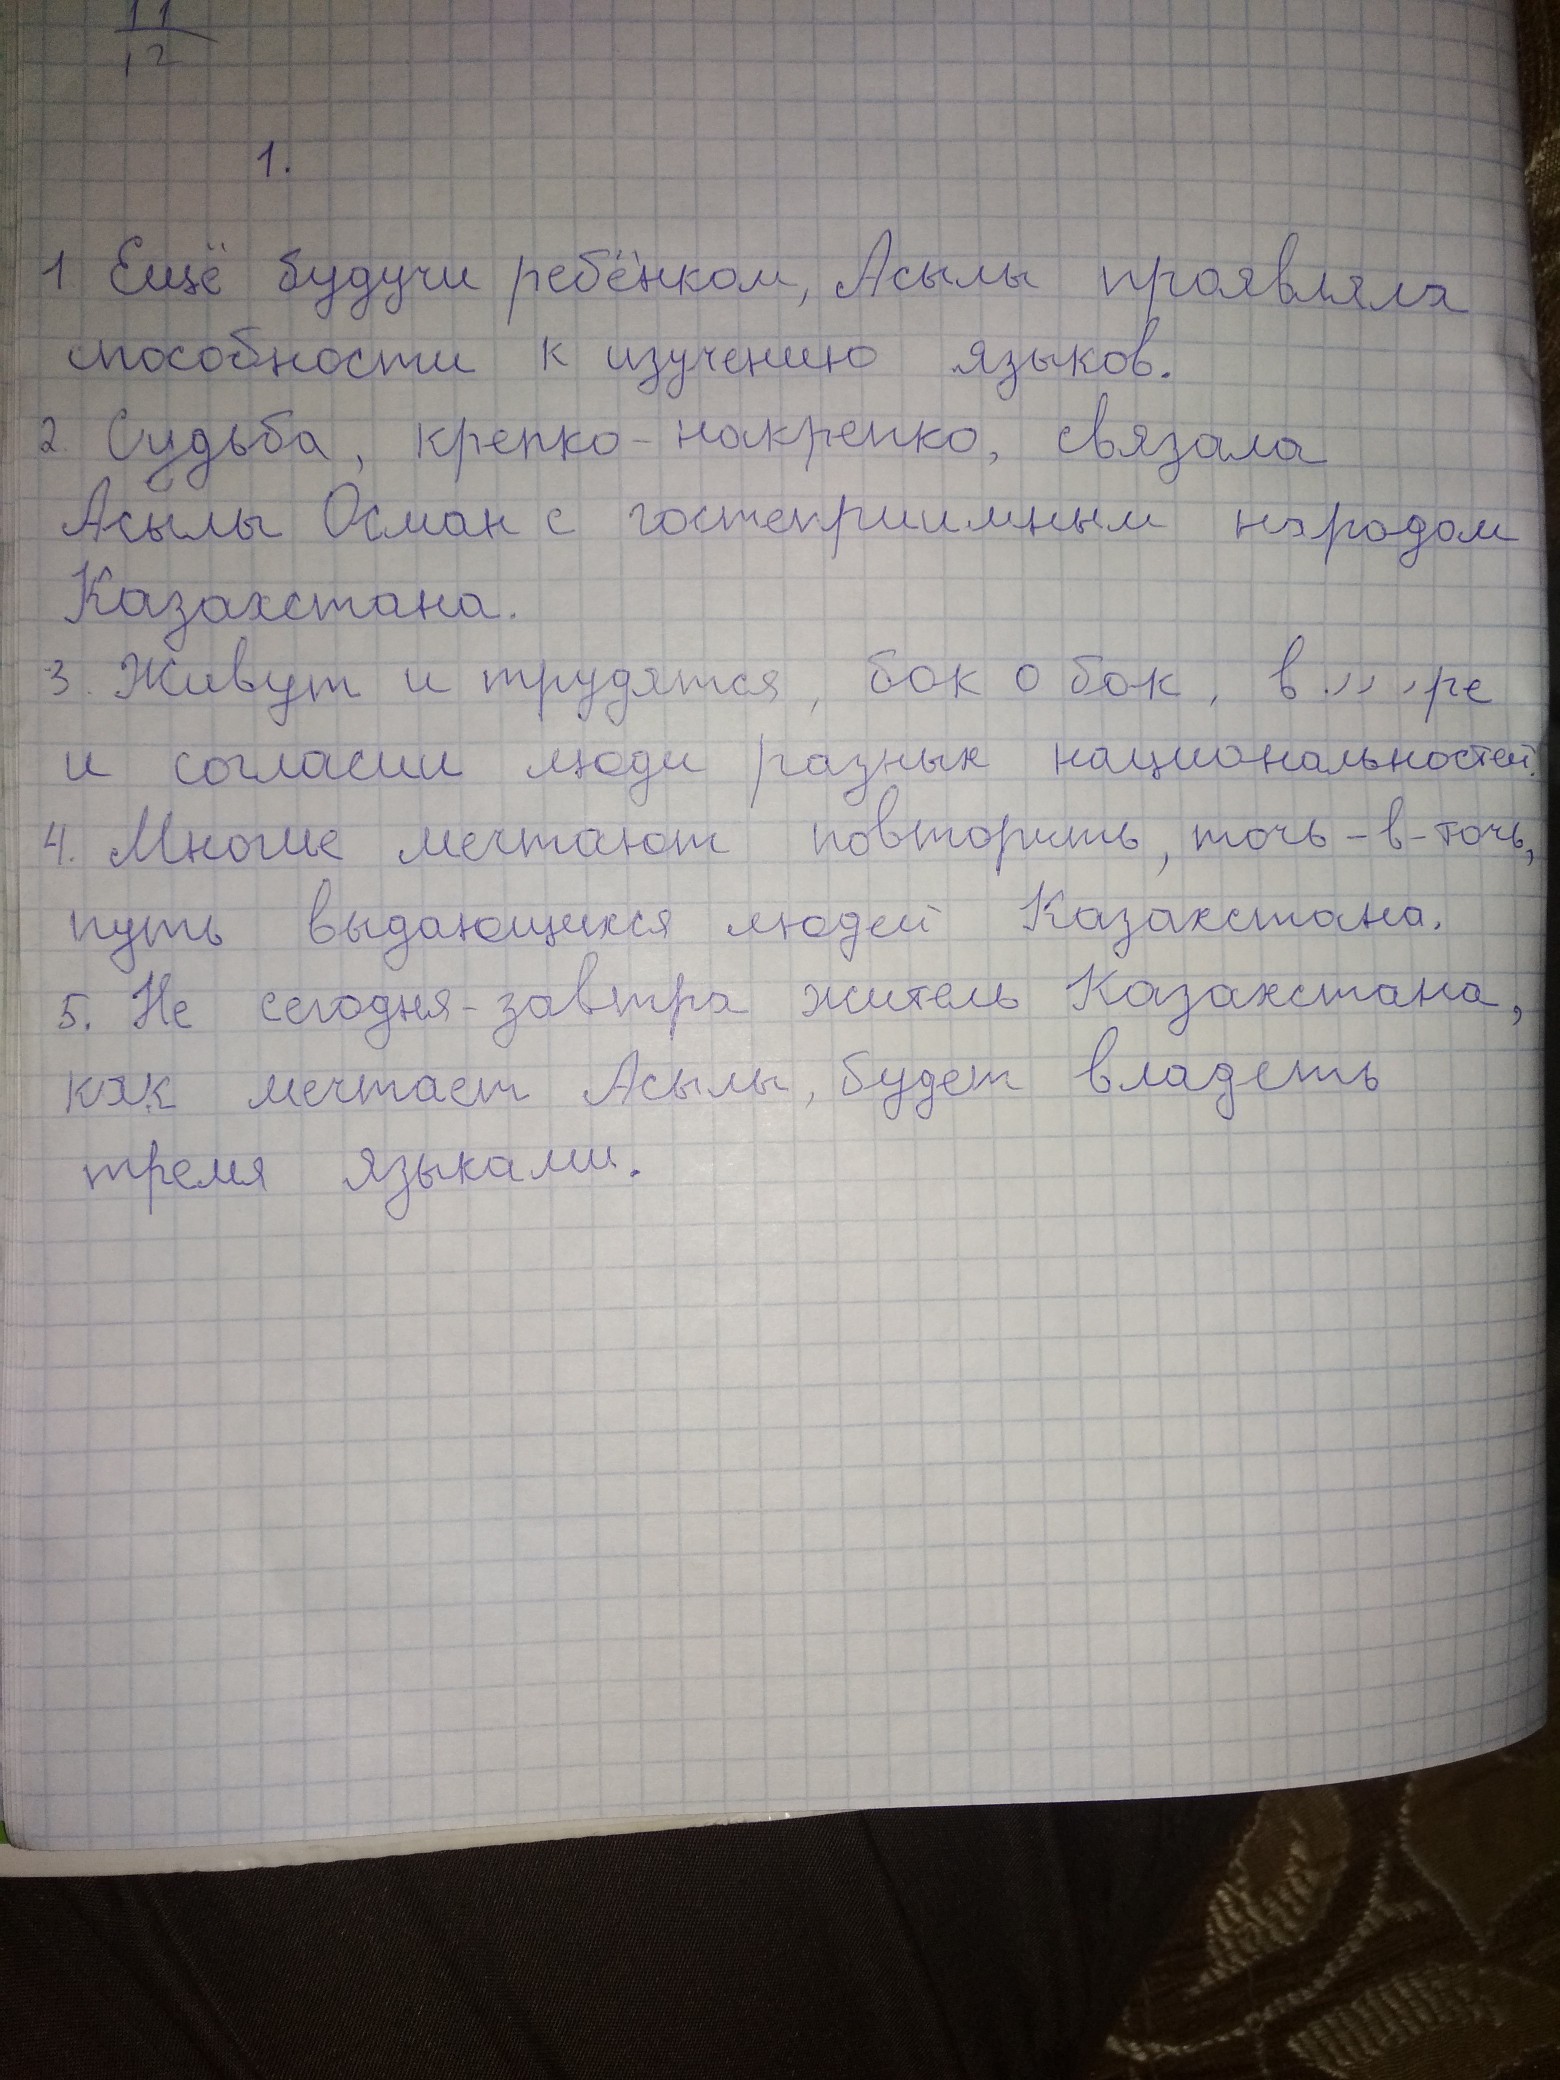 11
12
1.
1 Ещё будучи ребёнком, Асылы проявляла
способности к изучению языков.
2. Судьба, крепко-накрепко, связала
Асылы Осман с гостеприимным народом
Казахстана.
3. Живут и трудятся, бок о бок, в
и согласии люди разных национальностей.
4. Многие мечтают повторить, точь-в-точь,
путь выдающихся людей Казахстана.
5. Не сегодня-завтра житель Казахстана,
как мечтает Асылы, будет владеть
тремя языками.